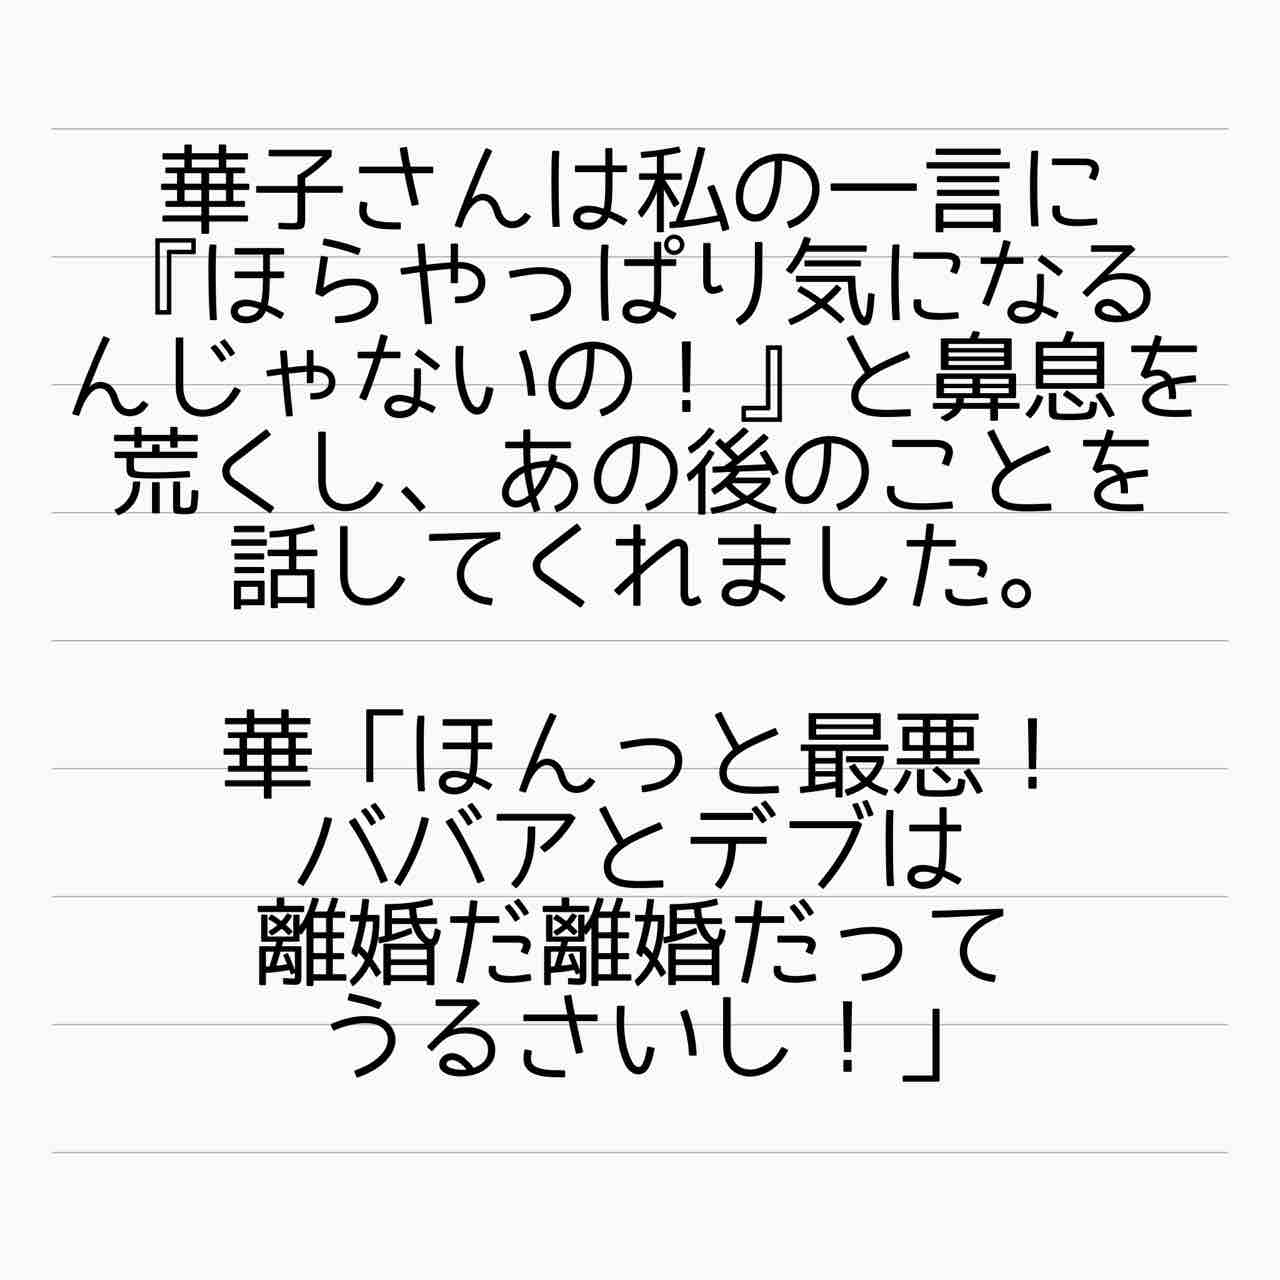 華子さんは私の一言に
『ほらやっぱり気になる
んじゃないの！』と鼻息を
荒くし、あの後のことを
話してくれました。
華「ほんっと最悪！
ババアとデブは
離婚だ離婚だって
うるさいし！」